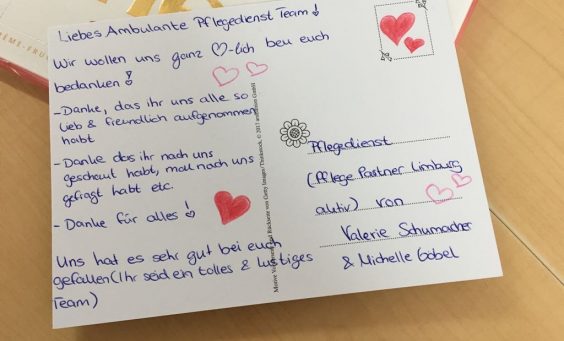 Liebes Ambulante Pflegedienst Team!
Wir wollen uns ganz ♡-lich beu euch
bedanken!
-Danke, das ihr uns alle so
lieb & freundlich aufgenommen
habt
-Danke das ihr nach uns
geschaut habt, mal nach uns
gefragt habt etc.
- Danke für alles!
Uns hat es sehr gut bei euch
gefallen (Ihr seid ein tolles & lustiges
Team)
Pflegedienst
(Pflege Partner Limburg
aktiv) von
Valerie Schumacher
& Michelle Göbel